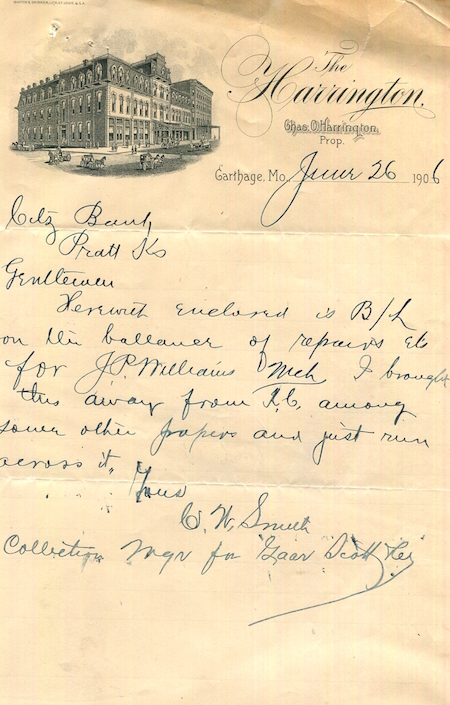 The
Harrington.
Chas. O. Harrington,
Prop.
Carthage, Mo., June 26 1906
Citz Bank
Pratt Ks
Gentlemen
Herewith enclosed is B/L
on the ballance of repairs etc
for J.P. Williams Mch I brought
this away from K.C. among
some other papers and just run
across it,
Yours
C. W. Smith
Collection Mgr for Gaar Scott &